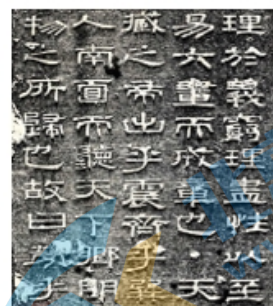 理於義窮理盡性以至
易六畫而成章也・天
臧之帝出乎震齊乎巽
人南面而聽天下鄉明
物之所歸也故曰勞乎